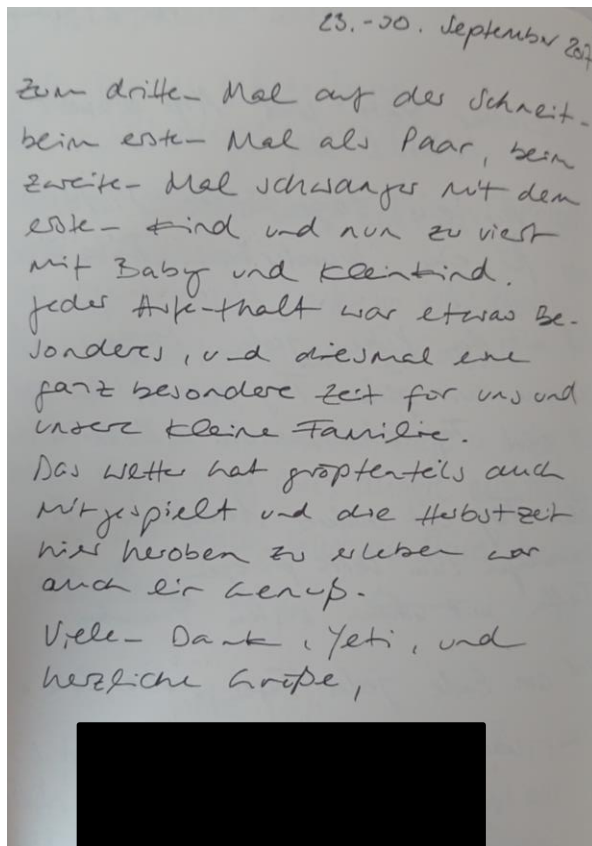 23.-30. September 2017
Zum dritten Mal auf der Schneit -
beim ersten Mal als Paar, beim
zweiten Mal schwanger mit dem
ersten Kind und nun zu viert
mit Baby und Kleinkind.
Jeder Aufenthalt war etwas Be-
sonderes, und diesmal eine
ganz besondere Zeit für uns und
unsere kleine Familie.
Das Wetter hat größtenteils auch
mitgespielt und die Herbstzeit
hier heroben zu erleben war
auch ein Genuß.
Vielen Dank, Yeti, und
herzliche Grüße,